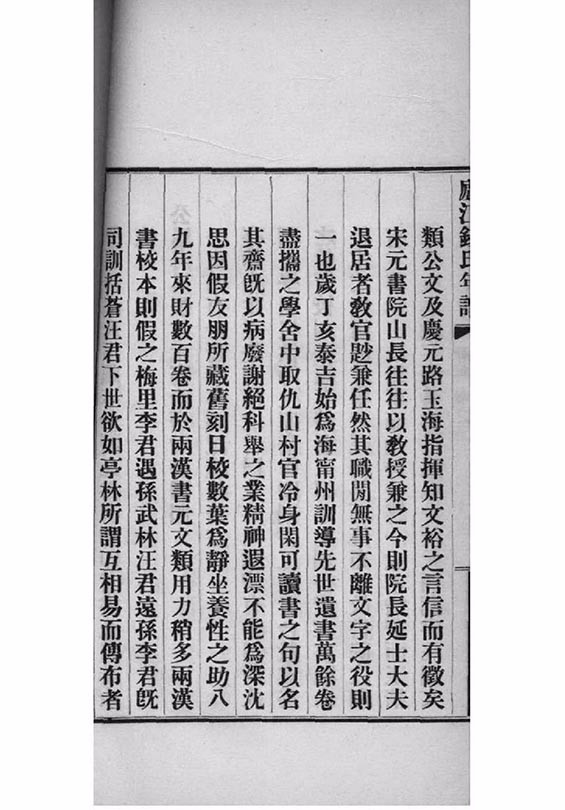 廬江錢氏年譜
類公文及慶元路玉海指揮知文裕之言信而有徵矣
宋元書院山長往往以教授兼之今則院長延士大夫
退居者教官尟兼任然其職閒無事不離文字之役則
一也歲丁亥泰吉始爲海甯州訓導先世遺書萬餘卷
盡攜之學舍中取仇山村官冷身閑可讀書之句以名
其齋旣以病廢謝絕科舉之業精神遐漂不能爲深沈
思因假友朋所藏舊刻日校數葉爲靜坐養性之助八
九年來財數百卷而於兩漢書元文類用力稍多兩漢
書校本則假之梅里李君遇孫武林汪君遠孫李君旣
司訓括蒼汪君下世欲如亭林所謂互相易而傳布者